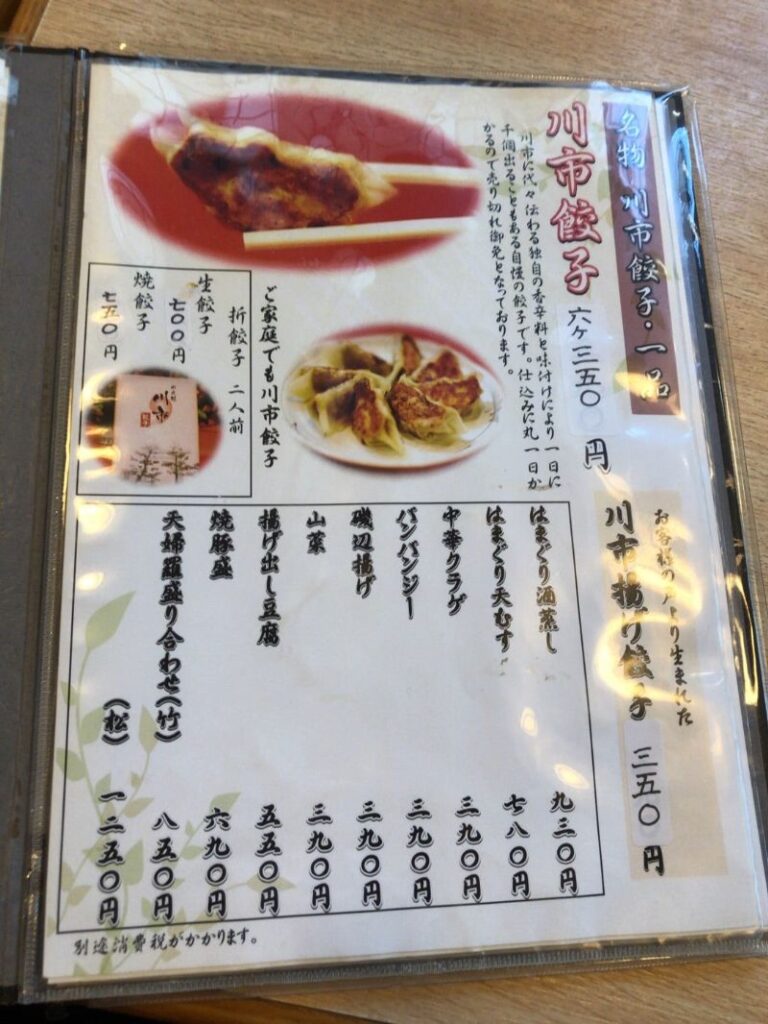 名物 川市餃子・一品
川市餃子 六ヶ三五〇円
川市に代々伝わる独自の香辛料と味付けにより一日に
千個出ることもある自慢の餃子です。仕込みに丸一日か
かるので売り切れ御免となっております。
ご家庭でも川市餃子
折餃子 二人前
生餃子
七〇〇円
焼餃子
七五〇円
川市
お客様の声より生まれた
川市揚げ餃子 三五〇円
はまぐり酒蒸し 九三〇円
はまぐり天むす 七八〇円
中華クラゲ 三九〇円
バンバンジー 三九〇円
磯辺揚げ 三九〇円
山菜 三九〇円
揚げ出し豆腐 五五〇円
焼豚盛 六九〇円
天婦羅盛り合わせ(竹) 八五〇円
(松) 一二五〇円
別途消費税がかかります。